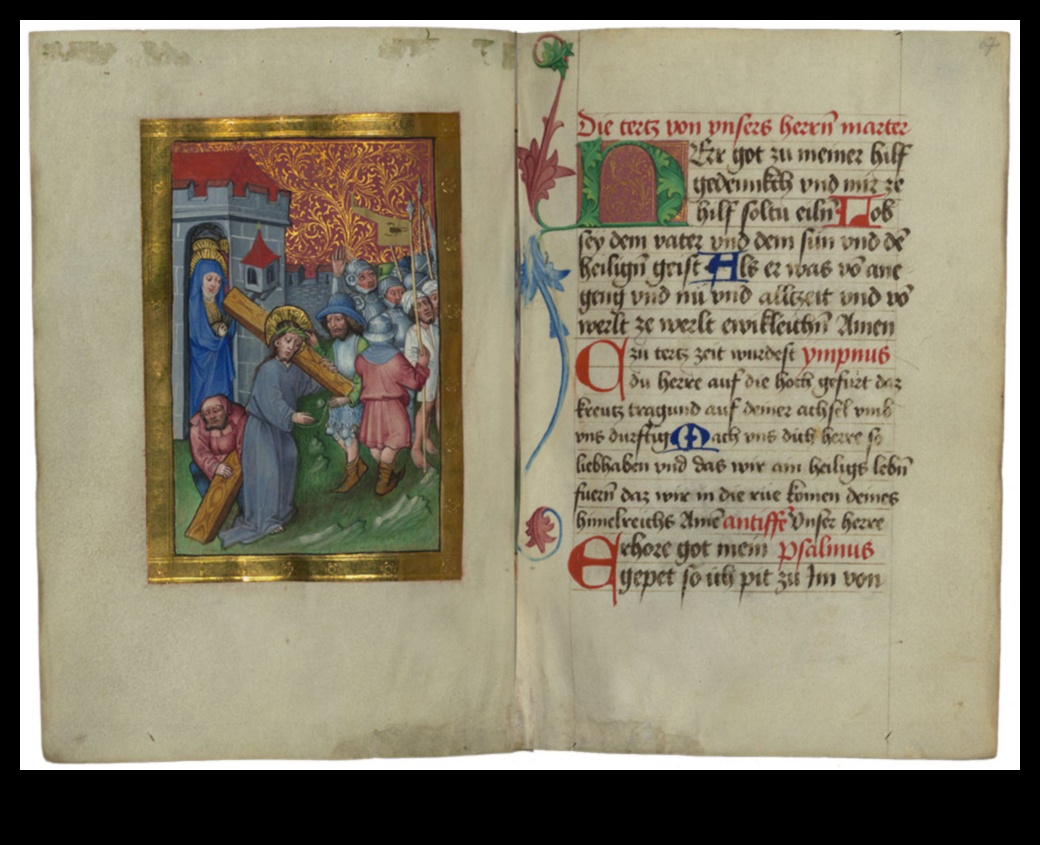 67
Die tertz von vnsers herrn marter
HErr got zu meiner hilf
gedennkch vnd mir ze
hilf soltu eiln Lob
sey dem vater vnd dem sun vnd dē
heilign geist Als er was vō ane
geng vnd nu vnd alltzeit vnd vō
werlt ze werlt ewikleichn Amen
zu tertz zeit wurdest ympnus
du herre auf die hoch gefürt daz
kreutz tragund auf deiner achsel vmb
vns durftig Mach vns dich herre so
liebhaben vnd das wir ain heiligs lebn
fuern daz wir in die rue komen deines
himelreichs Amē antiffē Vnser herre
Erhore got mein psalmus
gepet so ich pit zu Im von